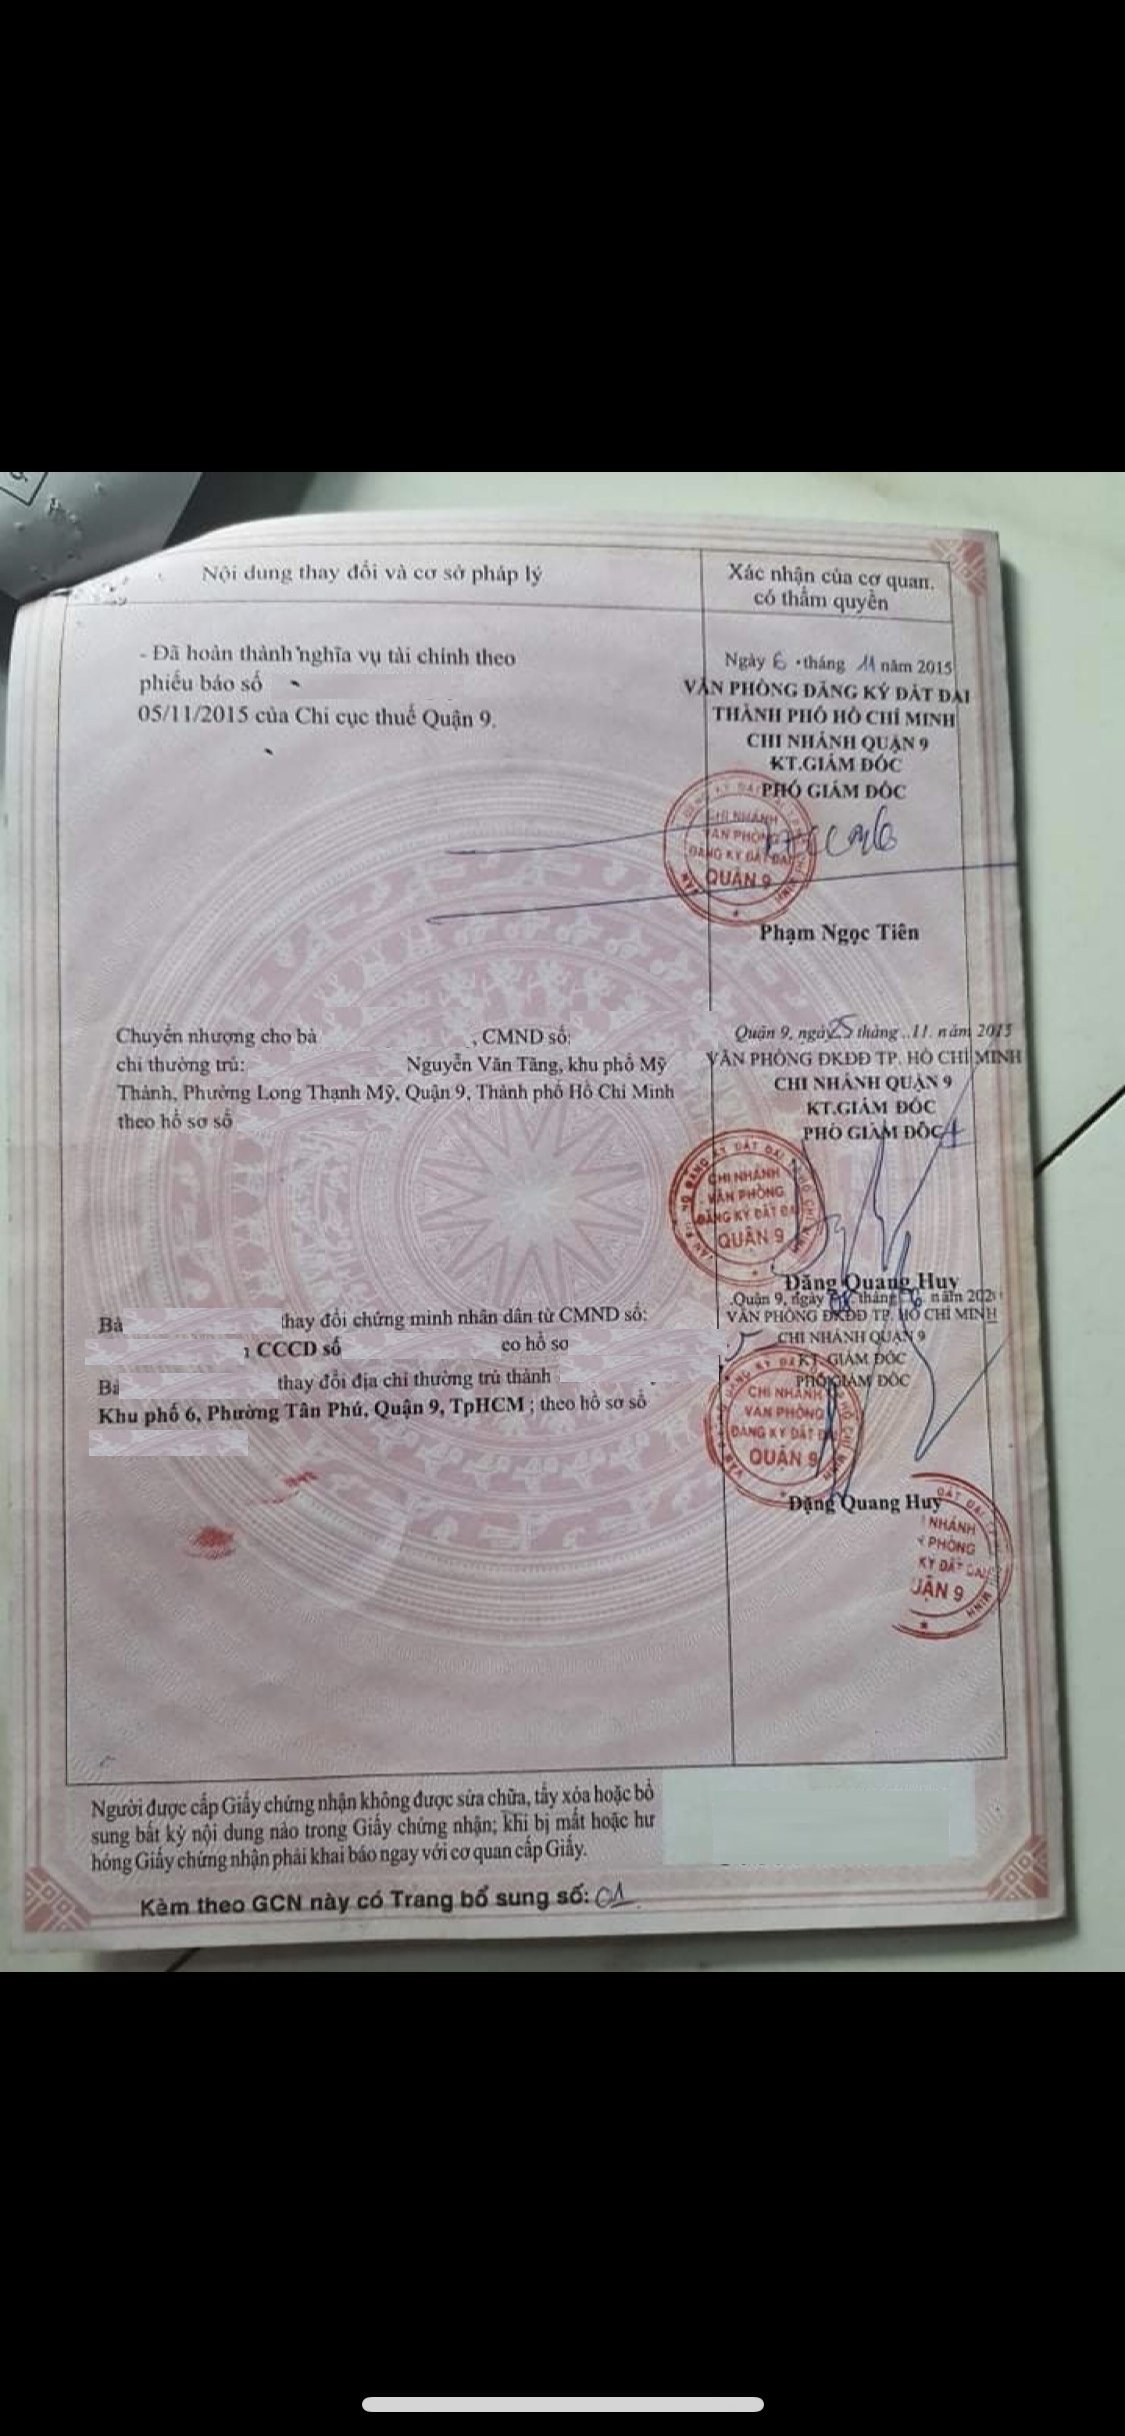 Nội dung thay đổi và cơ sở pháp lý
Xác nhận của cơ quan.
có thẩm quyền
- Đã hoàn thành nghĩa vụ tài chính theo
phiếu báo số
05/11/2015 của Chi cục thuế Quận 9.
Ngày 6 tháng 11 năm 2015
VĂN PHÒNG ĐĂNG KÝ ĐẤT ĐAI
THÀNH PHỐ HỒ CHÍ MINH
CHI NHÁNH QUẬN 9
KT.GIÁM ĐỐC
PHÓ GIÁM ĐỐC
CHI NHÁNH
VĂN PHÒNG
ĐĂNG KÝ ĐẤT ĐAI
QUẬN 9
Phạm Ngọc Tiên
Chuyển nhượng cho bà , CMND số:
chỉ thường trú: Nguyễn Văn Tăng, khu phố Mỹ
Thành, Phường Long Thạnh Mỹ, Quận 9, Thành phố Hồ Chí Minh
theo hồ sơ số
Quận 9, ngày 25 tháng 11. năm 2015
VĂN PHÒNG ĐKĐĐ TP. HỒ CHÍ MINH
CHI NHÁNH QUẬN 9
KT.GIÁM ĐỐC
PHÓ GIÁM ĐỐC
CHI NHÁNH
VĂN PHÒNG
ĐĂNG KÝ ĐẤT ĐAI
QUẬN 9
Đặng Quang Huy
Bà thay đổi chứng minh nhân dân từ CMND số:
CCCD số eo hồ sơ
Bà thay đổi địa chỉ thường trú thành
Khu phố 6, Phường Tân Phú, Quận 9, TpHCM ; theo hồ sơ số
Quận 9, ngày tháng năm 202
VĂN PHÒNG ĐKĐĐ TP. HỒ CHÍ MINH
CHI NHÁNH QUẬN 9
KT. GIÁM ĐỐC
PHÓ GIÁM ĐỐC
CHI NHÁNH
VĂN PHÒNG
ĐĂNG KÝ ĐẤT
QUẬN 9
Đặng Quang Huy
NHÁNH
PHÒNG
KÝ ĐẤT ĐAI
UẬN 9
Người được cấp Giấy chứng nhận không được sửa chữa, tẩy xóa hoặc bổ
sung bất kỳ nội dung nào trong Giấy chứng nhận; khi bị mất hoặc hư
hỏng Giấy chứng nhận phải khai báo ngay với cơ quan cấp Giấy.
Kèm theo GCN này có Trang bổ sung số: 01